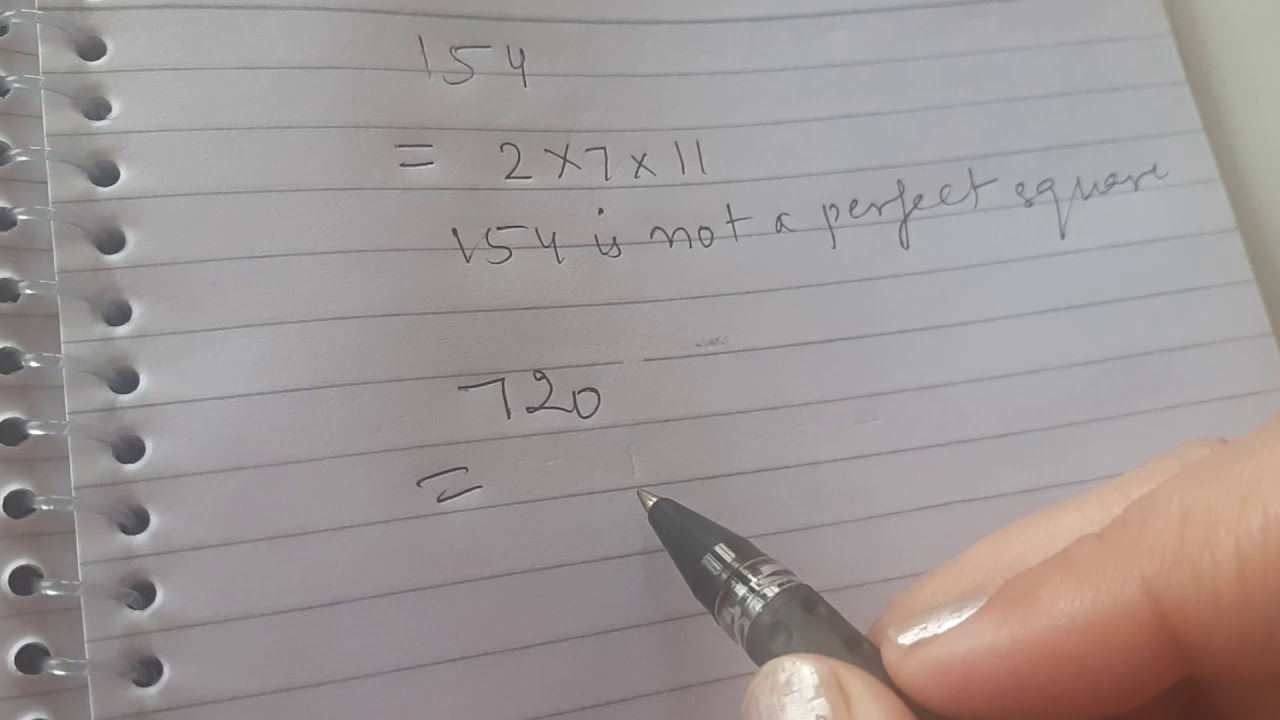 154
= 2×7×11
154 is not a perfect square
720
=